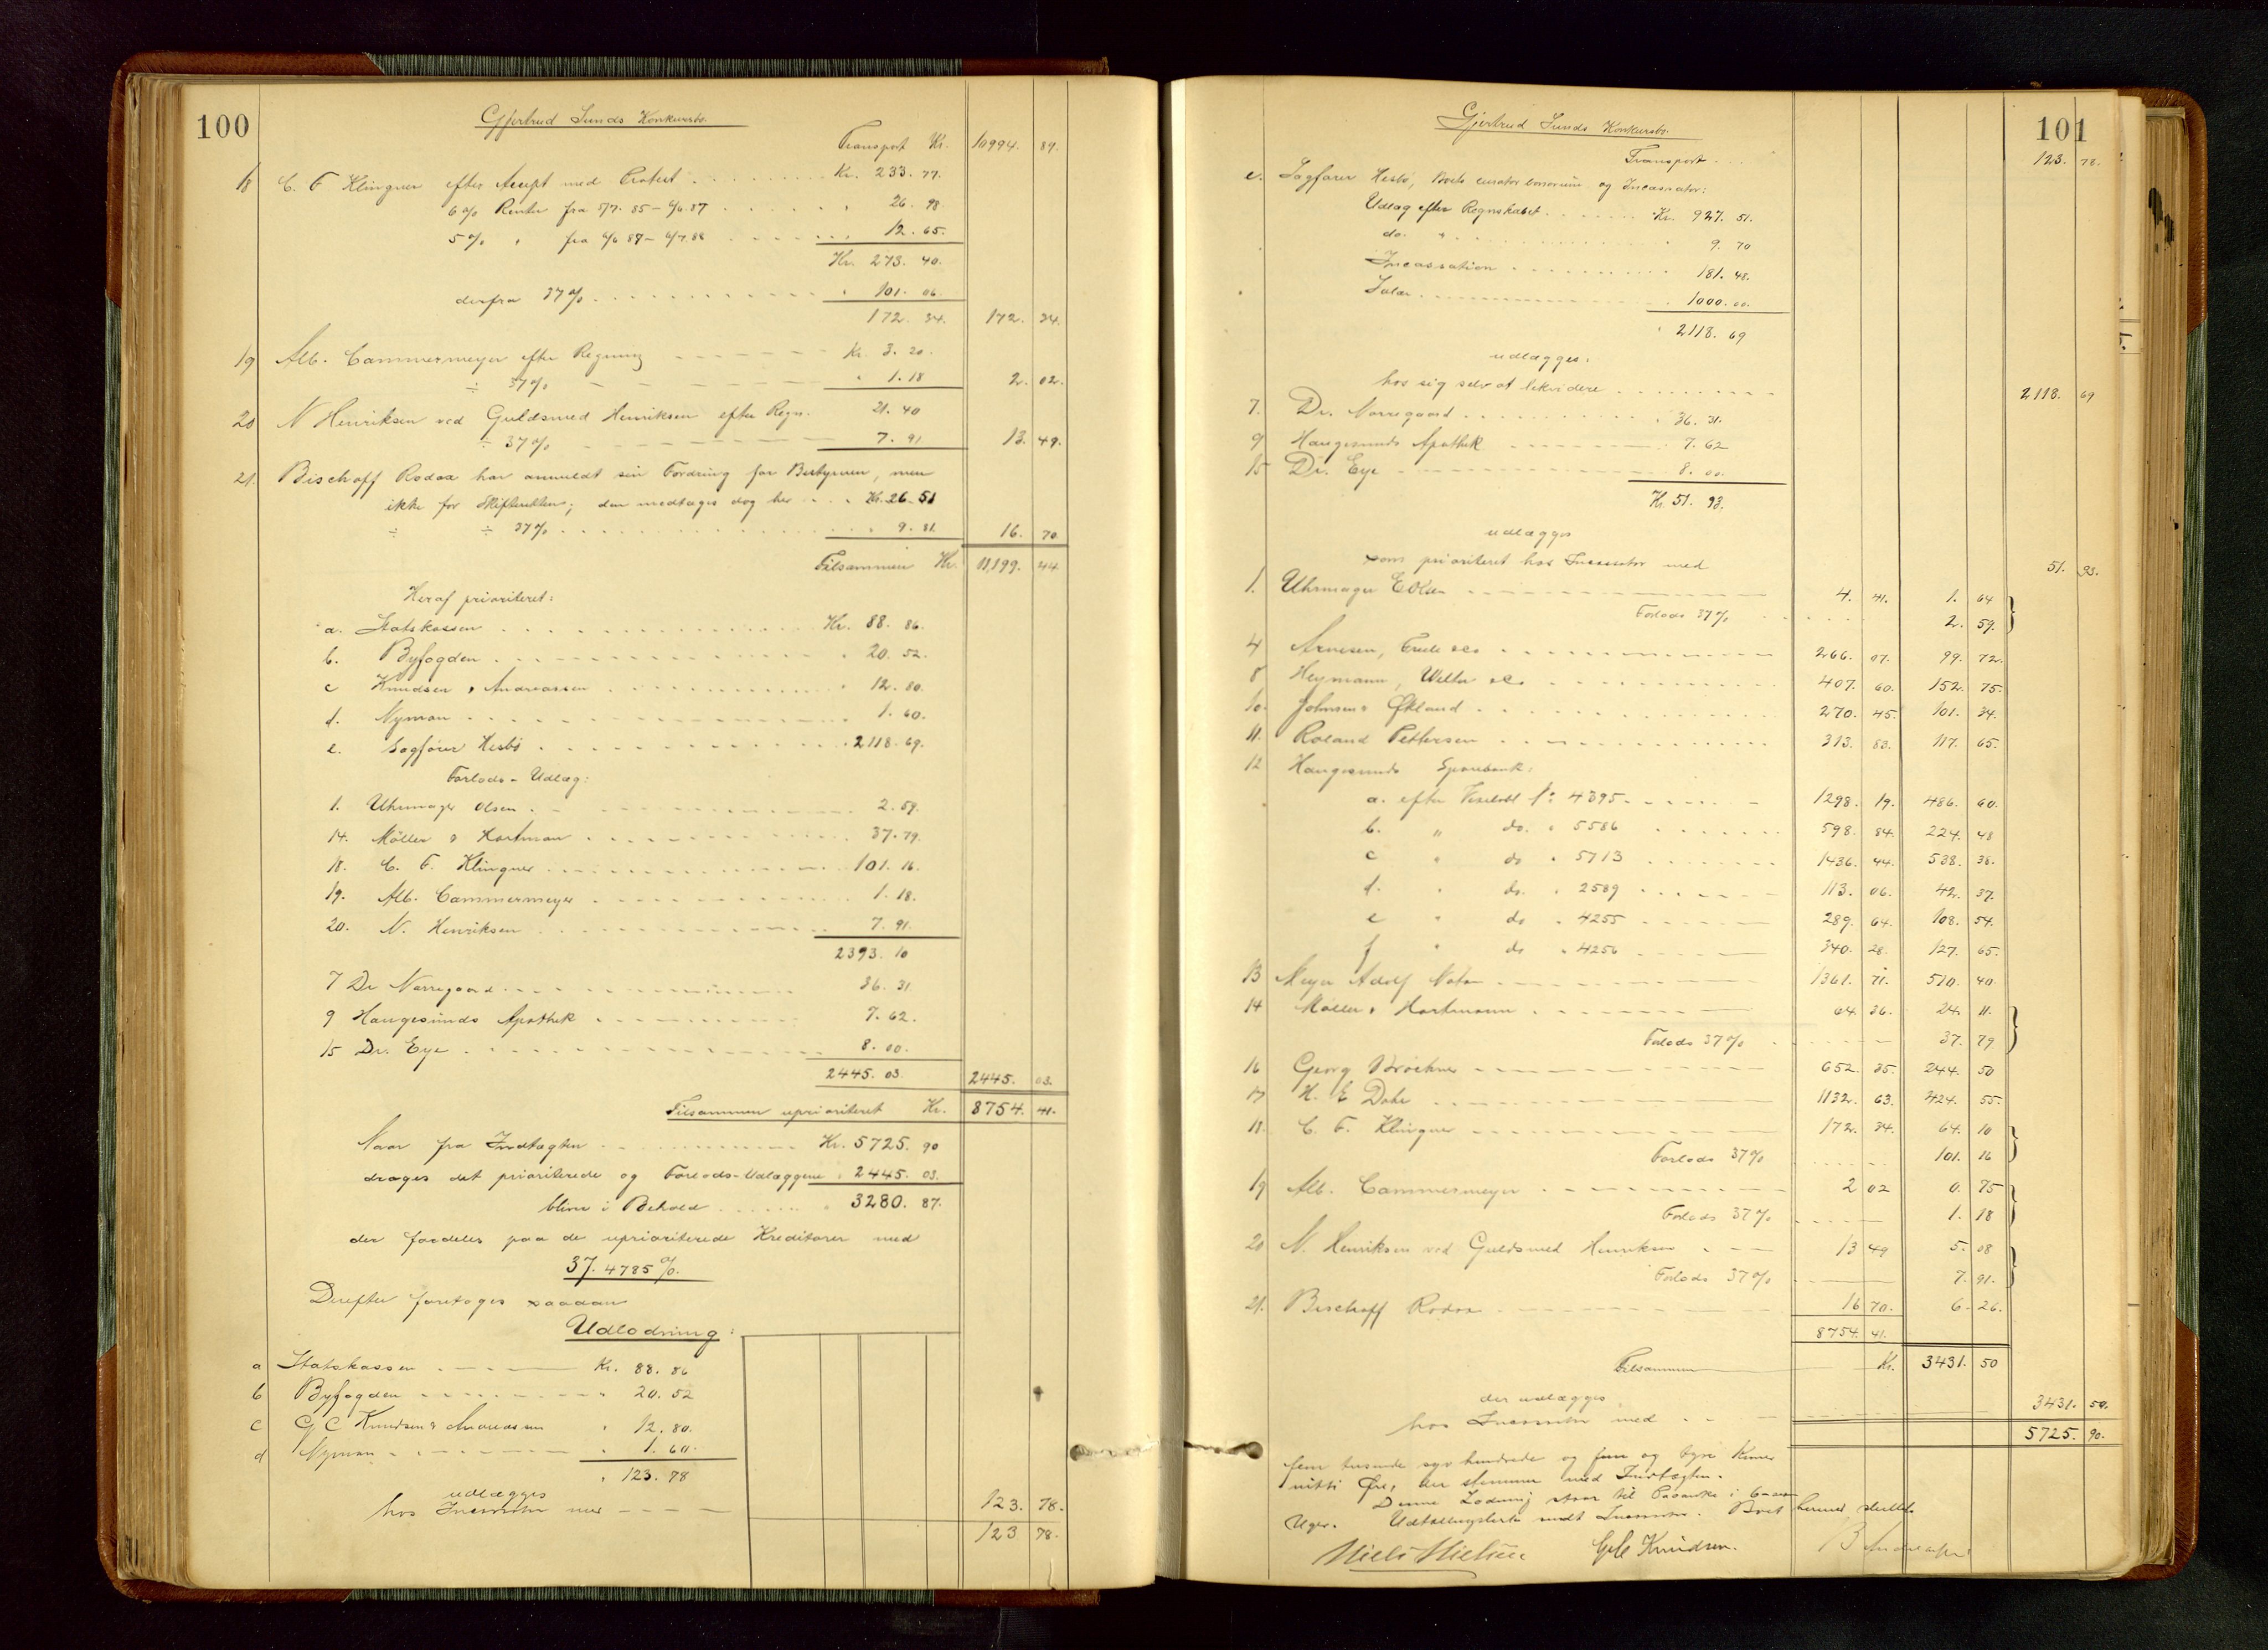 100
Gjertrud Sunds Konkursbo.
Transport Kr. 10994. 89.
18 C. F. Klingner efter Accept med Protest Kr. 233. 77.
6 % Renter fra 5/7. 85 – 6/6. 87 " 26. 98
5 % " fra 6/6 87 – 6/7. 88 " 12. 65.
Kr. 273. 40.
derfra 37 % " 101. 06.
172. 34. 172. 34.
19 Alb. Cammermeyer efter Regning Kr. 3. 20.
÷ 37 % " 1. 18 2. 02.
20 N Henriksen ved Guldsmed Henriksen efter Regn. 21. 40
÷ 37 % 7. 91 13. 49.
21. Bischoff Rodoa har anmeldt sin Fordring for Bestyreren, men
ikke for Skifteretten; den medtages dog her Kr. 26 - 51
÷ ÷ 37 % " 9. 81. 16. 70
Tilsammen Kr. 11,199. 44
Heraf prioriteret:
a. Statskassen Kr. 88. 86.
b. Byfogden " 20. 52.
c Knudsen & Andreassen " 12. 80.
d. Nyman 1. 60.
e. Sagfører Hesbø " 2118. 69.
Forlods-Udlæg:
1. Uhrmager Olsen 2. 59.
14. Møller & Hartman 37. 79.
18. C. F. Klingner 101. 16.
19. Alb. Cammermeyer 1. 18.
20. N. Henriksen 7. 91.
2393. 10
7 Dr Nørregaard 36. 31
9 Haugesunds Apothek 7. 62.
15 Dr. Eye 8. 00.
2445. 03. 2445. 03.
Tilsammen uprioriteret Kr. 8754. 41.
Naar fra Indtægten Kr. 5725. 90
drages det prioriterede og Forlods-Udlæggene " 2445. 03.
bliver i Behold " 3280. 87.
der fordeles paa de uprioriterede Kreditorer med
37. 4785 %.
Derefter foretages saadan
Udlodning:
a Statskassen Kr. 88. 86
b Byfogden " 20. 52
c G C Knudsen & Andreassen " 12. 80.
d Nyman " 1. 60.
" 123. 78
udlægges
hos Incassator med 123. 78.
123 78.
101
Gjertrud Sunds Konkursbo.
Transport 123. 78.
e. Sagfører Hesbø, Boets curator bonorum og Incassator:
Udlæg efter Regnskabet Kr. 927. 51.
do. " " 9. 70
Incassation " 181. 48.
Salær " 1000. 00.
" 2118. 69
udlægges:
hos sig selv at likvidere 2118. 69
7. Dr. Nørregaard " 36. 31.
9 Haugesunds Apothek " 7. 62
15 Dr. Eye 8. 00.
Kr. 51. 93.
udlægges
som prioriteret hos Incassator med 51. 93.
1. Uhrmager E Olsen 4. 41. 1. 64
Forlods 37 % 2. 59.
4 Arnesen, & Co 266. 07. 99. 72.
8 Heymann, Welter & Co 407. 60. 152. 75.
10. Johnsen & Økland 270. 45. 101. 34.
11. Roland Pettersen 313. 83. 117. 65.
12 Haugesunds Sparebank:
a. efter Vexelobl № 4395. 1298. 19. 486. 60.
b. " do. " 5586 598. 84. 224. 48
c " do " 5713 1436. 44. 538. 38.
d. " do. " 2589 113. 06. 42. 37.
e " do " 4255 289. 64. 108. 54.
f " do " 4256 340. 28. 127. 65.
13 Meyer Adolf Natan 1361. 71. 510. 40
14 Møller & Hartmann 64. 36. 24. 11.
Forlods 37 % 37. 79
16 Georg Brøchner 652. 35. 244. 50
17 H. E Dahr 1132. 63. 424. 55.
18. C. F. Klingner 172. 34. 64. 10
Forlods 37 % 101. 16
19 Alb. Cammermeyer 2 02 0. 75
Forlods 37 % 1. 18
20 N. Henriksen ved Guldsmed Henriksen 13 49 5. 08
Forlods 37 % 7. 91.
21. Bischoff Rodoa 16 70. 6 - 26.
8754. 41.
Tilsammen Kr. 3431. 50
der udlægges
hos Incassator med 3431. 50.
5725. 90.
fem tusinde syv hundrede og fem og tyve Kroner
nitti Øre, der stemmer med Indtægten.
Denne Lodning staar til Paaanke i 6 -
Uger. Udtællingsliste sendt Incassator. Boet hermed sluttet.
Niels Nielsen GC Knudsen. B Andreassen